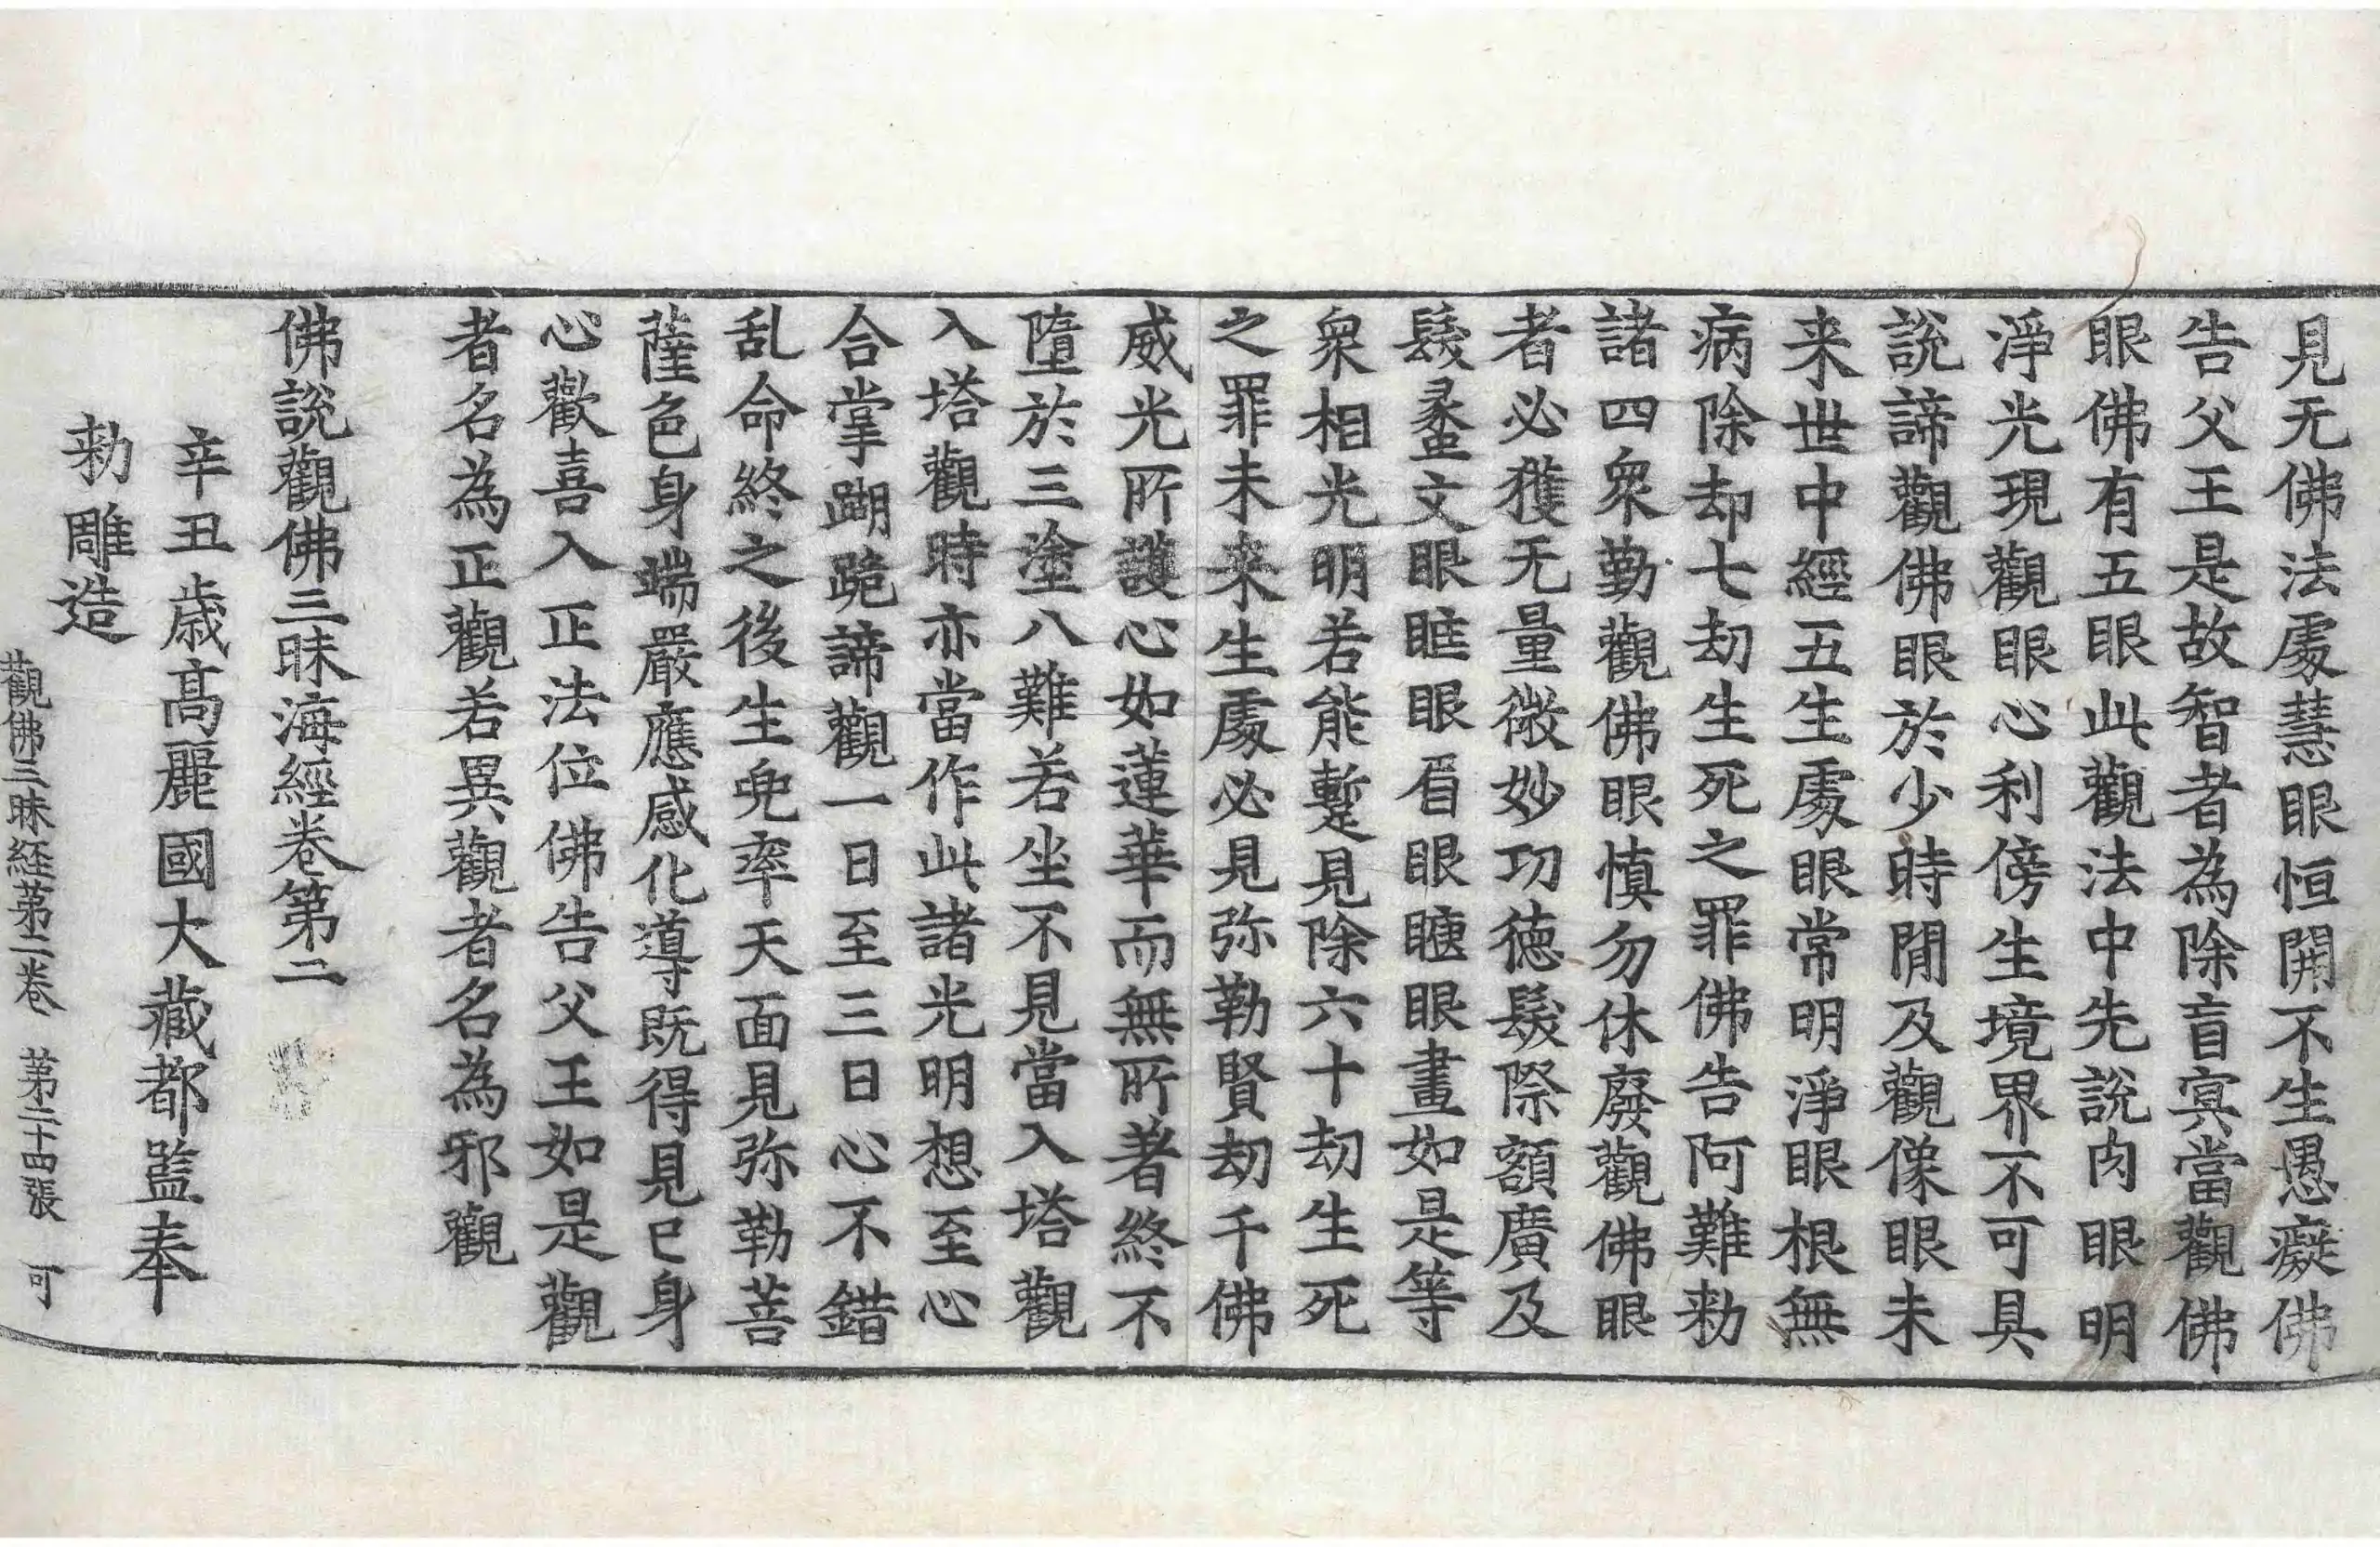 見无佛法處慧眼恒開不生愚癡佛
告父王是故智者為除盲冥當觀佛
眼佛有五眼此觀法中先說肉眼明
淨光現觀眼心利傍生境界不可具
說諦觀佛眼於少時閒及觀像眼未
来世中經五生處眼常明淨眼根無
病除却七劫生死之罪佛告阿難勑
諸四衆勤觀佛眼慎勿休廢觀佛眼
者必獲无量微妙功德髮際額廣及
髮蠡文眼眶眼眉眼睫眼畫如是等
衆相光明若能蹔見除六十劫生死
之罪未来生處必見弥勒賢劫千佛
威光所護心如蓮華而無所著終不
墮於三塗八難若坐不見當入塔觀
入塔觀時亦當作此諸光明想至心
合掌䠒跪諦觀一日至三日心不錯
乱命終之後生兜率天面見弥勒菩
薩色身端嚴應感化導既得見已身
心歡喜入正法位佛告父王如是觀
者名為正觀若異觀者名為邪觀
佛說觀佛三昧海經卷第二
辛丑歲高麗國大藏都監奉
勑雕造
觀佛三昧経第二卷 第二十四張 可